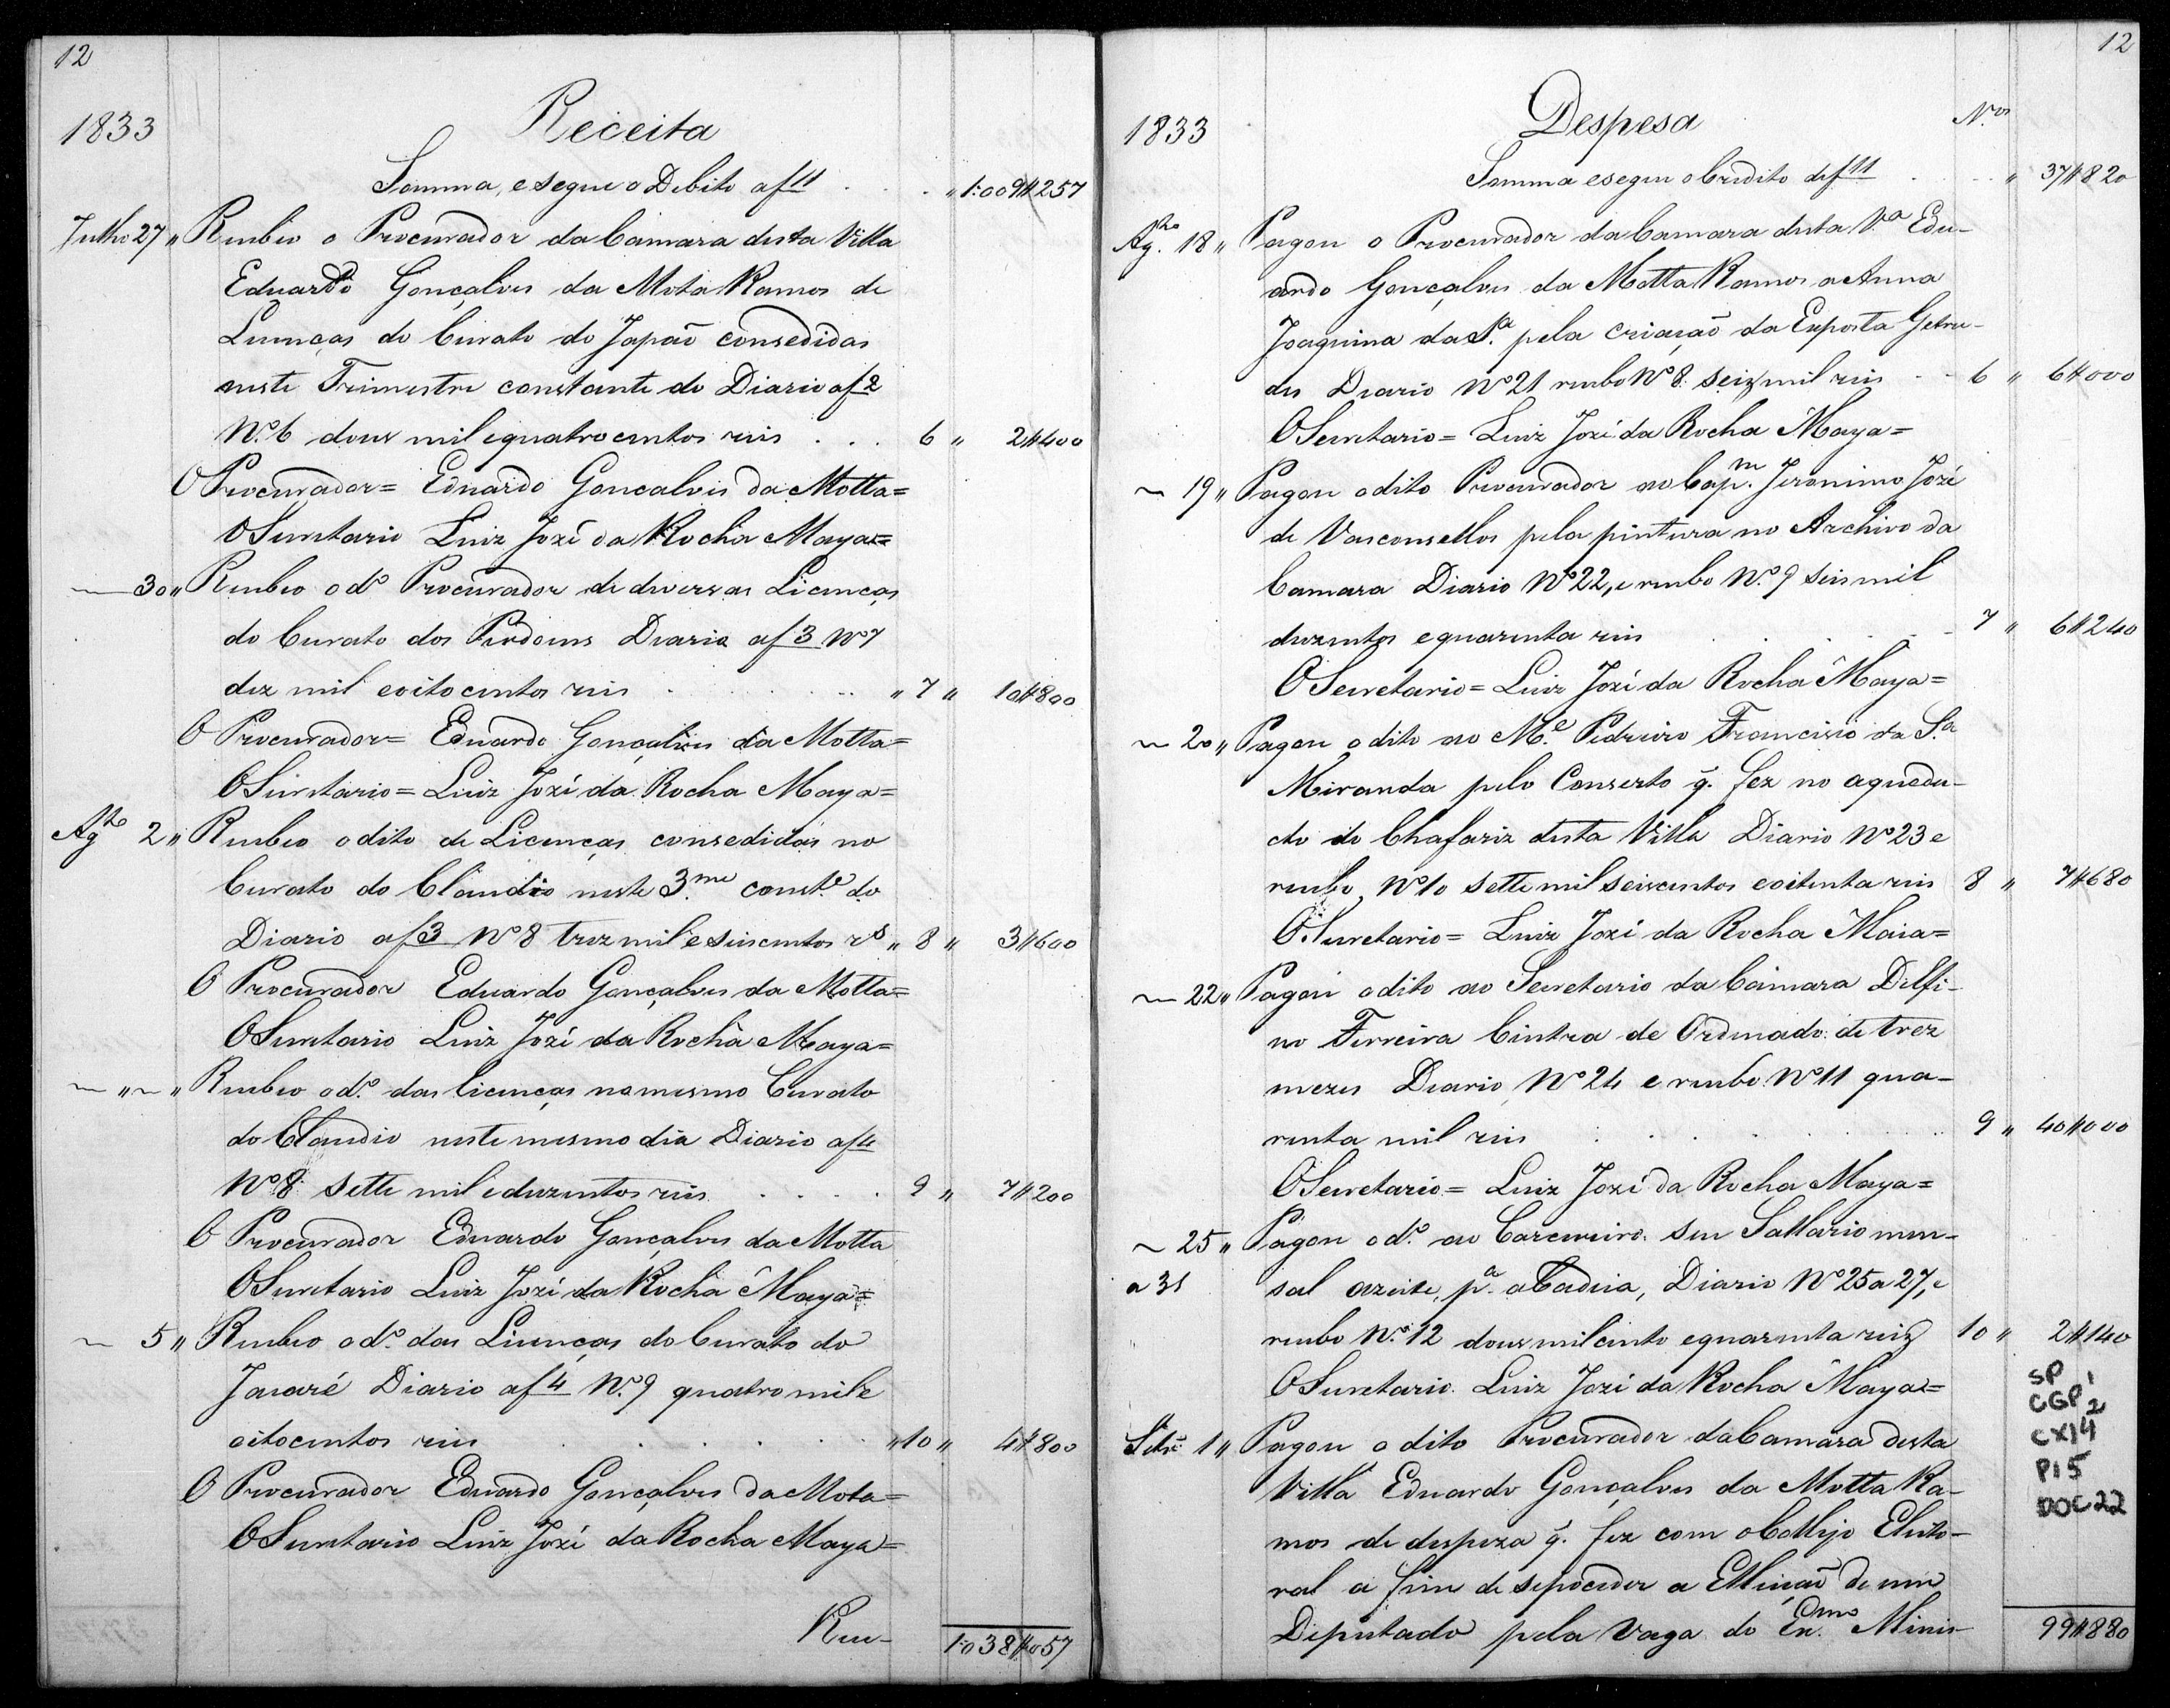 12
1833
Receita
Somma, e segue o Debito a f 11 . . . " 1:009$257
Julho 27 " Recebeo o Procurador da Camara desta Villa
Eduardo Gonçalves da Mota Ramos de
Licenças do Curato do Japaõ consedidas
neste Trimestre constante do Diario a f 2
Nº. 6 dous mil e quatro centos reis . . . 6 " 2$400
O Procurador = Eduardo Gonçalves da Motta =
O Secretario Luiz Jozé da Rocha Maya =
~ 30 " Recebeo o dº. Procurador de diversas Licenças
do Curato dos Perdoens Diario a f 3 Nº 7
dez mil e oito centos reis . . . " 7 " 10$800
O Procurador = Eduardo Gonçalves da Motta =
O Secretario = Luiz Jozé da Rocha Maya =
Agto 2 " Recebeo o dito de Licenças consedidas no
Curato do Claudio neste 3.me conste. do
Diario a f 3 Nº 8 trez mil e seiscentos rs " 8 " 3$600
O Procurador Eduardo Gonçalves da Motta =
O Secretario Luiz Jozé da Rocha Maya =
~ " ~ " Recebeo o dº. das licenças no mesmo Curato
do Claudio neste mesmo dia Diario a f 4
Nº 8 sette mil e duzentos reis . . . . 9 " 7$200
O Procurador Eduardo Gonçalves da Motta
O Secretario Luiz Jozé da Rocha Maya =
~ 5 " Recebeo o dº. das Licenças do Curato do
Jacaré Diario a f 4 Nº. 9 quatro mil e
oitocentos reis . . . . . " 10 " 4$800
O Procurador Eduardo Gonçalves da Mota =
O Secretario Luiz Jozé da Rocha Maya =
Rece- 1:038$057
12
1833
Despesa
N.os
Somma e segue o Credito de f 11 . . . " 37$820
Ag.to 18 " Pagou o Procurador da Camara desta V.a Edu-
ardo Gonçalves da Motta Ramos a Anna
Joaquina da S.a pela criaçaõ da Exposta Getru-
des Diario Nº 21 recebo Nº 8 seiz mil reis - - 6 " 6$000
O Secretario = Luiz Jozé da Rocha Maya =
~ 19 " Pagou o dito Procurador ao Cap.m Jeronimo Jozé
de Vasconsellos pela pintura no Archivo da
Camara Diario Nº 22, e recebo Nº. 9 seis mil
duzentos e quarenta reis . . . 7 " 6$240
O Secretario = Luiz Jozé da Rocha Maya =
~ 20 " Pagou o dito ao M.e Pedreiro Francisco da S.a
Miranda pelo Conserto q̃. fez no aquedu-
cto do Chafariz desta Villa Diario Nº 23 e
recebo Nº 10 sette mil seiscentos e oitenta reis 8 " 7$680
O Secretario = Luiz Jozé da Rocha Maia =
~ 22 " Pagou o dito ao Secretario da Camara Delfi-
no Ferreira Cintra de Ordenado de trez
mezes Diario Nº 24 e recebo Nº 11 qua-
renta mil reis . . . . . 9 " 40$000
O Secretario = Luiz Jozé da Rocha Maya =
~ 25 " Pagou o dº. ao Carcereiro seu Sallario men-
a 31 sal azeite, p.a a Cadeia, Diario Nº 25 a 27, e
recebo Nº. 12 dous mil cento e quarenta reiz 10 " 2$140
O Secretario. Luiz Jozé da Rocha Maya =
Setr.e 1 " Pagou o dito Procurador da Camara desta
Villa Eduardo Gonçalves da Motta Ra-
mos de despeza q̃. fez com o Collejo Eleito-
ral a fim de se proceder a Elleiçaõ de um
Deputado pela vaga do Ex.mo Minis-
99$880
SP
CGP 1 2
CX14
P15
DOC22